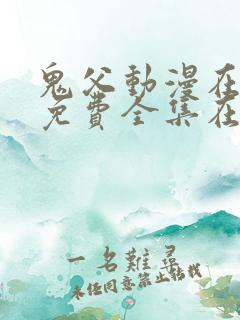 鬼父動漫在
免費全集在
一名難尋
未经同意禁止转载